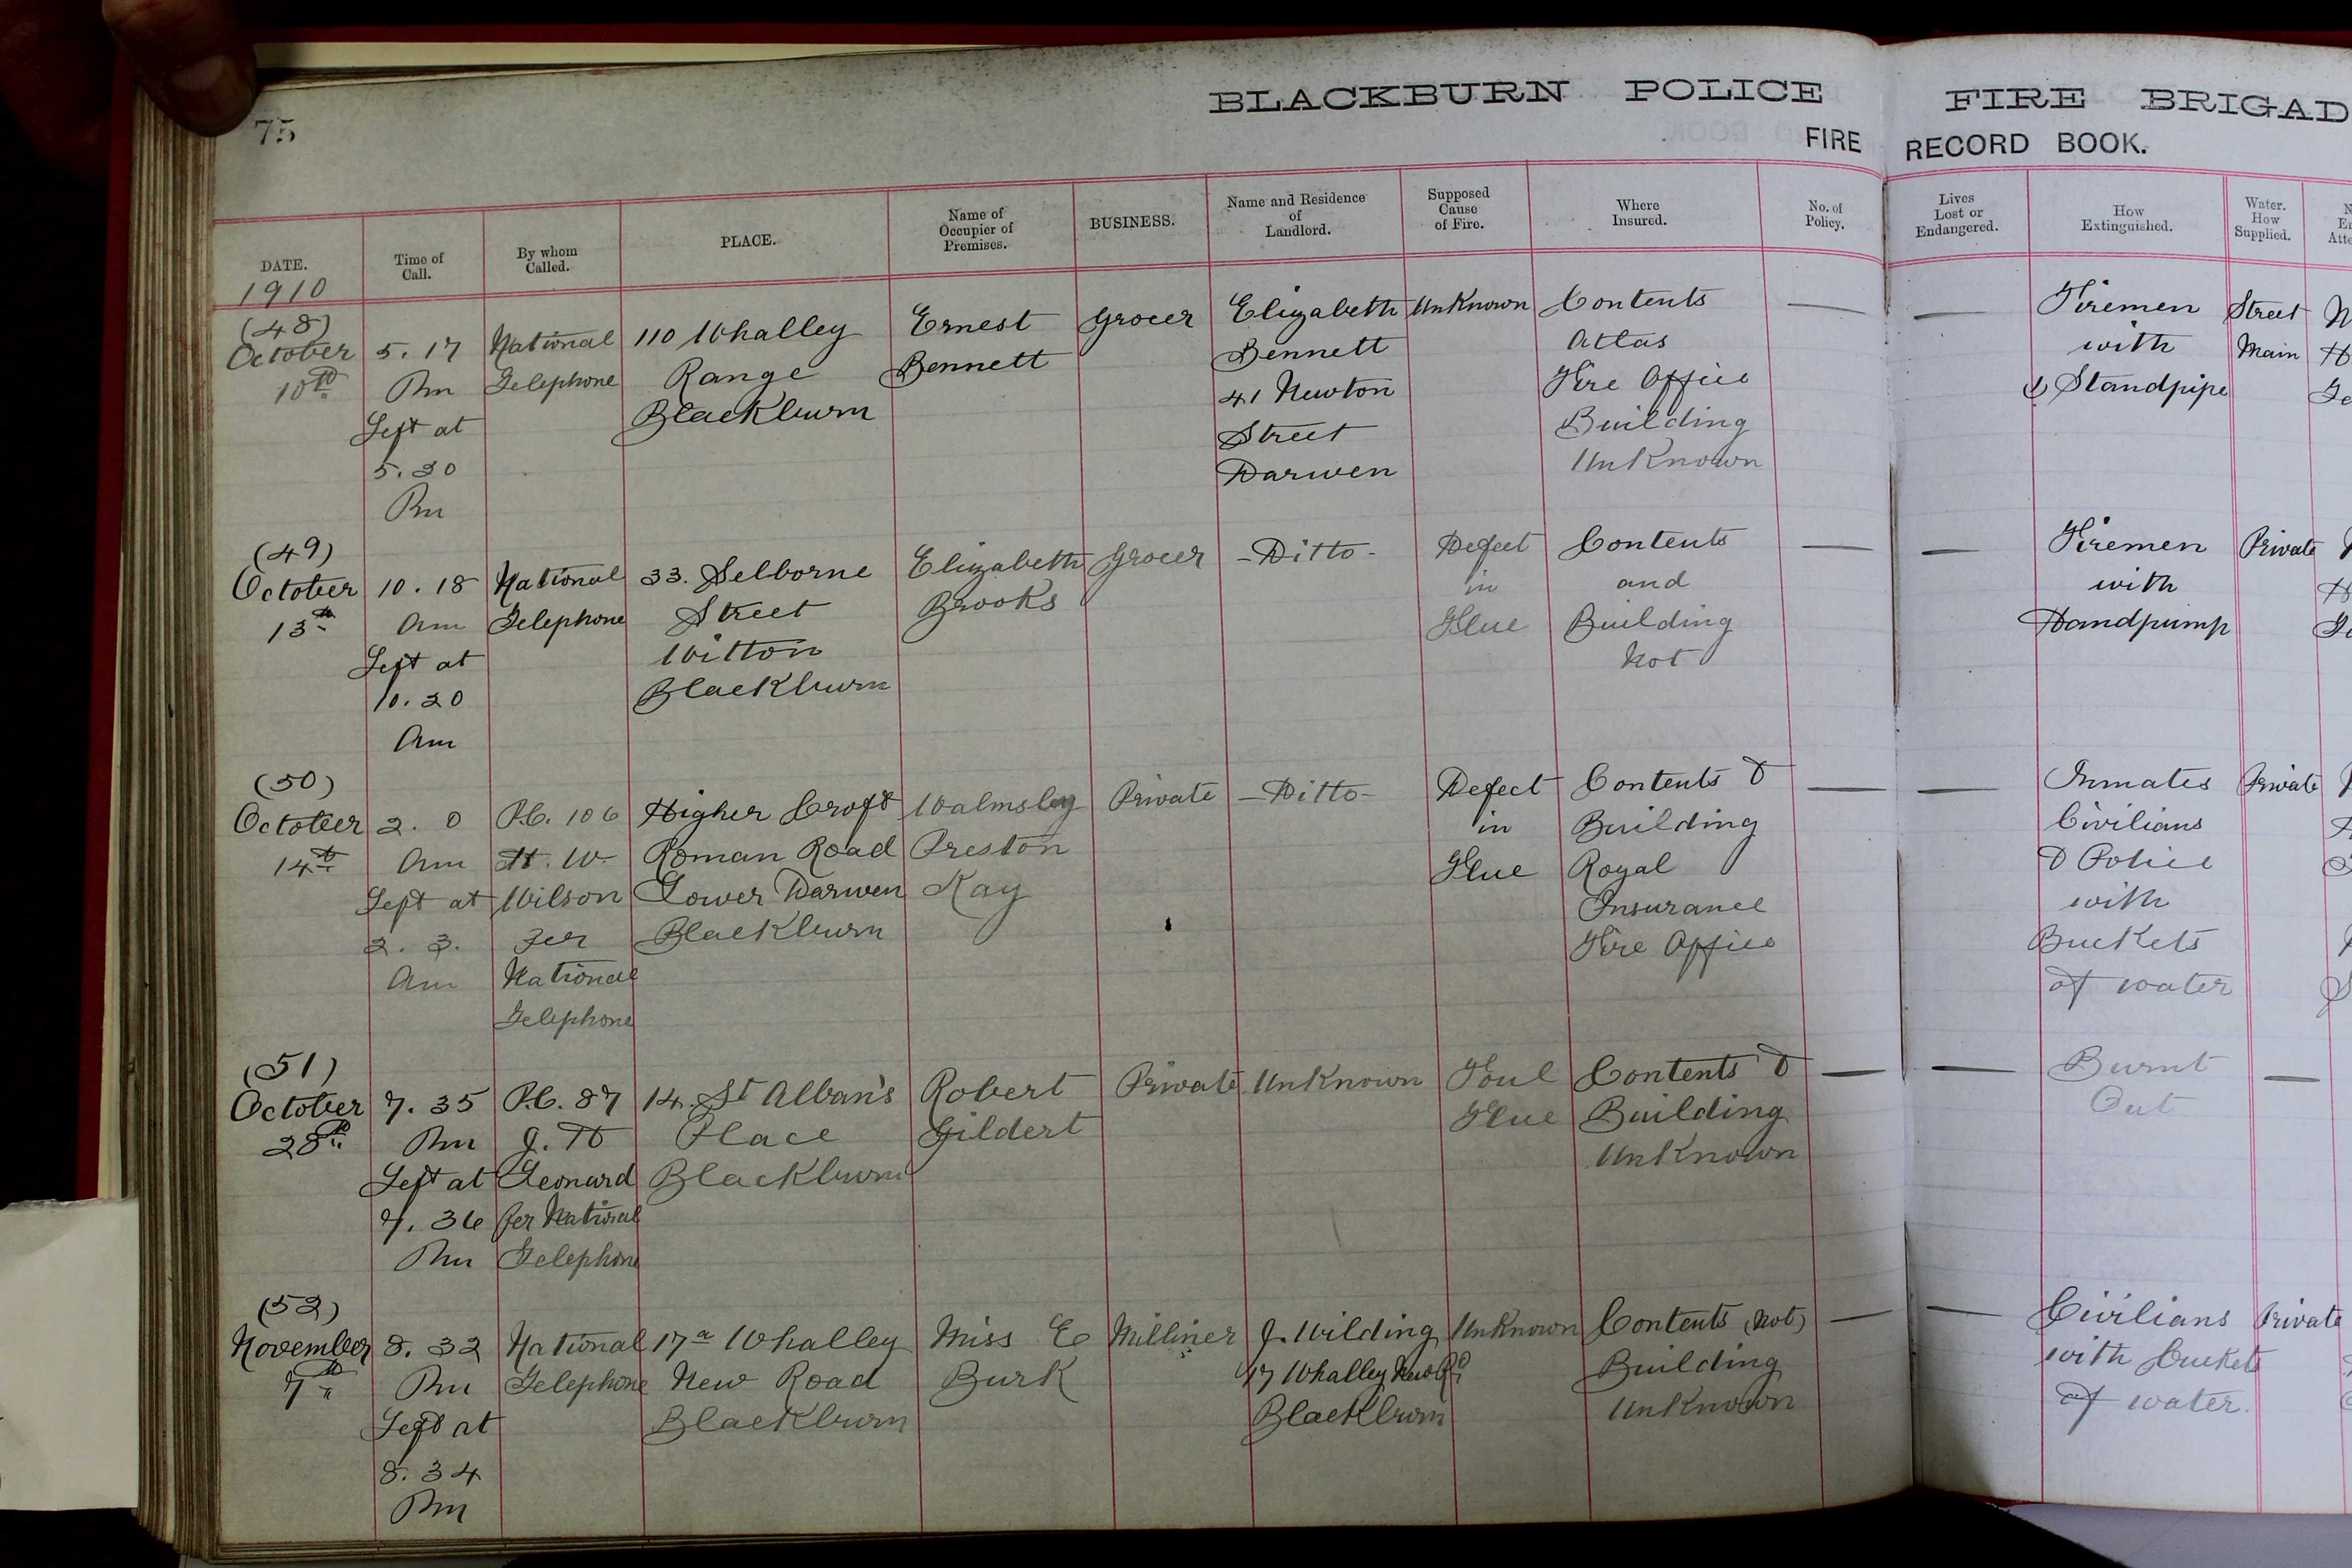 75
BLACKBURN POLICE FIRE BRIGAD
FIRE RECORD BOOK.
DATE.
1910
Time of
Call.
By whom
Called.
PLACE.
Name of
Occupier of
Premises.
BUSINESS.
Name and Residence
of
Landlord.
Supposed
Cause
of Fire.
Where
Insured.
No. of
Policy.
Lives
Lost or
Endangered.
How
Extinguished.
Water.
How
Supplied.
(48)
October
10th
5.17
Pm
Left at
5.20
Pm
National
Telephone
110 Whalley
Range
Blackburn
Ernest
Bennett
Grocer
Elizabeth
Bennett
41 Newton
Street
Darwen
Unknown
Contents
Atlas
Fire Office
Building
Unknown
—
—
Firemen
with
Standpipe
Street
Main
(49)
October
13th
10.18
Am
Left at
10.20
Am
National
Telephone
33. Selborne
Street
Witton
Blackburn
Elizabeth
Brooks
Grocer
-Ditto-
Defect
in
Flue
Contents
and
Building
Not
—
—
Firemen
with
Handpump
Private
(50)
October
14th
2.0
Am
Left at
2.3.
Am
P.C. 106
H. W.
Wilson
Per
National
Telephone
Higher Croft
Roman Road
Lower Darwen
Blackburn
Walmsley
Preston
Kay
Private
-Ditto-
Defect
in
Flue
Contents &
Building
Royal
Insurance
Fire Office
—
—
Inmates
Civilians
& Police
with
Buckets
of water
Private
(51)
October
28th
7.35
Pm
Left at
7.36
Pm
P.C. 87
J. H
Leonard
per National
Telephone
14. St Alban's
Place
Blackburn
Robert
Gildert
Private
Unknown
Foul
Flue
Contents &
Building
Unknown
—
—
Burnt
Out
—
(52)
November
7th
8.32
Pm
Left at
8.34
Pm
National
Telephone
17a Whalley
New Road
Blackburn
Miss E
Burk
Milliner
J. Wilding
17 Whalley New Rd
Blackburn
Unknown
Contents (Not)
Building
Unknown
—
—
Civilians
with buckets
of water.
Private